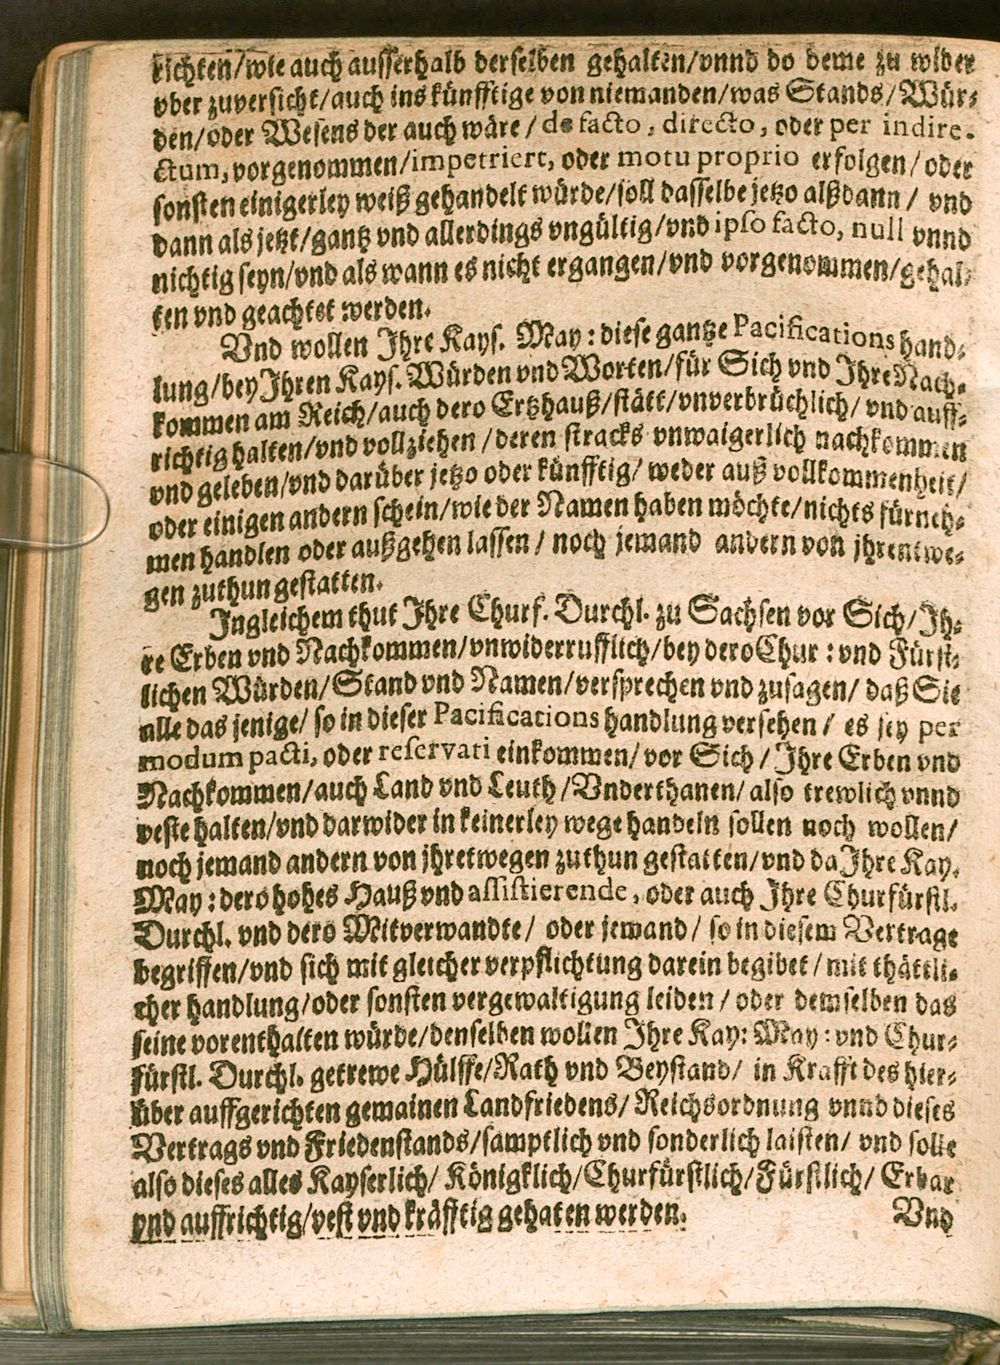 richten/wie auch ausserhalb derselben gehalten/vnnd do deme zu wider
vber zuversicht/auch ins künfftige von niemanden/was Stands/Wür-
den/oder Wesens der auch wäre/de facto, directo, oder per indire-
ctum, vorgenommen/impetriert, oder motu proprio erfolgen/oder
sonsten einigerley weiß gehandelt würde/soll dasselbe jetzo alßdann/ vnd
dann als jetzt/gantz vnd allerdings vngültig/vnd ipso facto, null vnnd
nichtig seyn/vnd als wann es nicht ergangen/vnd vorgenommen/gehal-
ten vnd geachtet werden.
Vnd wollen Ihre Kays. May: diese gantze Pacifications hand-
lung/bey Ihren Kays. Würden vnd Worten/für Sich vnd Ihre Nach-
kommen am Reich/auch dero Ertzhauß/stätt/vnverbrüchlich/ vnd auff-
richtig halten/vnd vollziehen/deren stracks vnwaigerlich nachkommen
vnd geleben/vnd darüber jetzo oder künfftig/ weder auß vollkommenheit/
oder einigen andern schein/wie der Namen haben möchte/nichts fürneh-
men handlen oder außgehen lassen/ noch jemand andern von jhrentwe-
gen zuthun gestatten.
Ingleichem thut Ihre Churf. Durchl. zu Sachsen vor Sich/Ih-
re Erben vnd Nachkommen/vnwiderrufflich/bey dero Chur: vnd Fürst-
lichen Würden/Stand vnd Namen/versprechen vnd zusagen/ daß Sie
alle das jenige/ so in dieser Pacifications handlung versehen/ es sey per
modum pacti, oder reservati einkommen/ vor Sich/ Ihre Erben vnd
Nachkommen/auch Land vnd Leuth/Vnderthanen/ also trewlich vnnd
veste halten/vnd darwider in keinerley wege handeln sollen noch wollen/
noch jemand andern von jhretwegen zuthun gestatten/vnd da Ihre Kay.
May: dero hohes Hauß vnd assistierende, oder auch Ihre Churfürstl.
Durchl. vnd dero Mitverwandte/ oder jemand/ so in diesem Vertrage
begriffen/vnd sich mit gleicher verpflichtung darein begibet/mit thättli-
cher handlung/oder sonsten vergewaltigung leiden/ oder demselben das
seine vorenthalten würde/denselben wollen Ihre Kay: May: vnd Chur-
fürstl. Durchl. getrewe Hülffe/Rath vnd Beystand/ in Krafft des hier-
über auffgerichten gemainen Landfriedens/ Reichsordnung vnnd dieses
Vertrags vnd Friedenstands/samptlich vnd sonderlich laisten/ vnd solle
also dieses alles Kayserlich/ Königklich/Churfürstlich/Fürstlich/ Erbar
vnd auffrichtig/vest vnd kräfftig gehaten werden.
Vnd